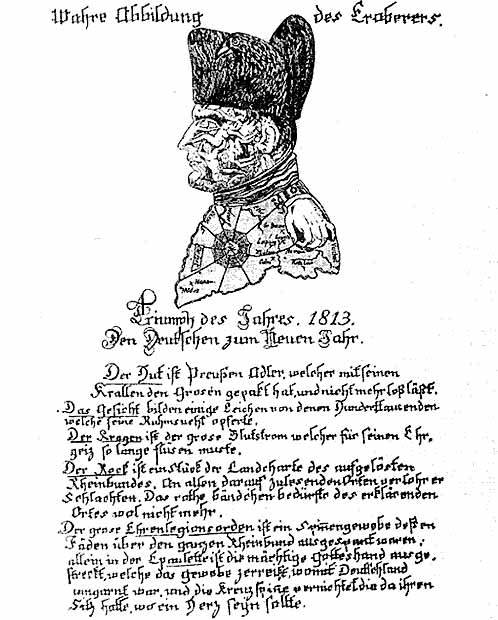 Wahre Abbildung des Eroberers.
Triumph des Jahres. 1813.
Den Deutschen zum Neuen Jahr.
Der Hut ist Preußen Adler, welcher mit seinen
Krallen den Grosen gepakt hat, und nicht mehr loß läßt.
Das Gesicht bilden einige Leichen von denen Hunderttausenden
welche seine Ruhmsucht opferte.
Der Kragen ist der grose Blutstrom welcher für seinen Ehr-
geiz so lange fliesen muste.
Der Rock ist ein Stück der Landcharte des aufgelösten
Rheinbundes. An allen darauf zu lesenden Orten verlohr er
Schlachten. Das rothe bändchen bedürfte des erklärenden
Ortes wol nicht mehr.
Der grose Ehrenlegionsorden ist ein Spinengewebe deßen
Fäden über den ganzen Rheinbund ausgespant waren;
allein in der Epaulette ist die mächtige Gotteshand ausge-
streckt, welche das gewebe zerreißt, womit Deutschland
umgarnt war, und die Kreuzspine vernichtet die da ihren
Sitz hatte, wo ein Herz seyn sollte.